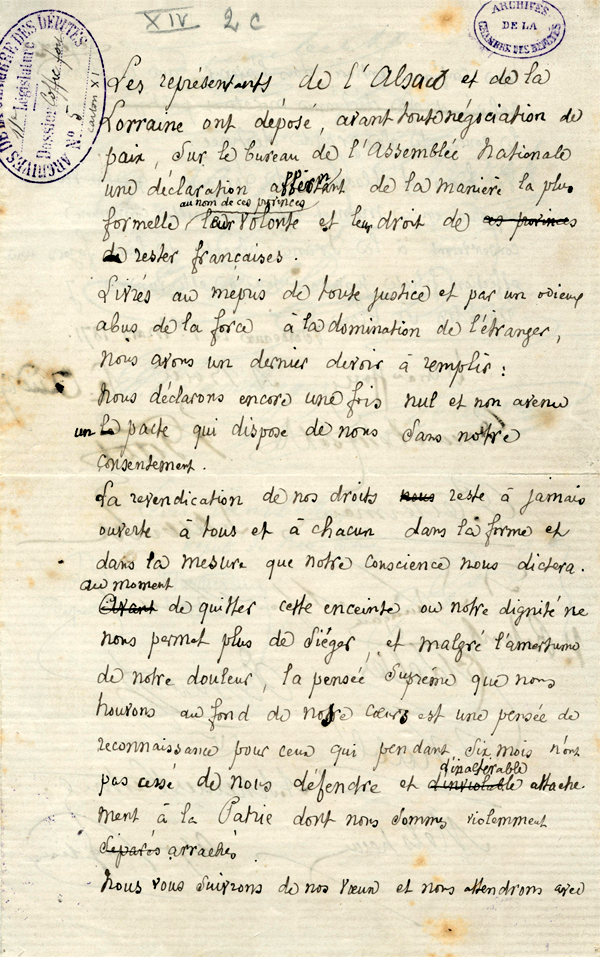 XIV 2 C
ARCHIVES DE LA CHAMBRE DES DÉPUTÉS
Législature
Dossier Coffre fort
No 5
carton XI
ARCHIVES
DE LA
CHAMBRE DES DÉPUTÉS
Les représentants de l'Alsace et de la
Lorraine ont déposé, avant toute négociation de
paix, sur le bureau de l'Assemblée Nationale
une déclaration affirmant de la manière la plus
au nom de ces provinces
formelle leur volonté et leur droit de ces provinces
de rester françaises.
Livrés au mépris de toute justice et par un odieux
abus de la force à la domination de l'étranger,
nous avons un dernier devoir à remplir :
Nous déclarons encore une fois nul et non avenu
un pacte qui dispose de nous sans notre
consentement.
La revendication de nos droits nous reste à jamais
ouverte à tous et à chacun dans la forme et
dans la mesure que notre conscience nous dictera.
au moment
Avant de quitter cette enceinte ou notre dignité ne
nous permet plus de siéger, et malgré l'amertume
de notre douleur, la pensée suprême que nous
trouvons au fond de notre cœurs est une pensée de
reconnaissance pour ceux qui pendant six mois n'ont
d'inaltérable
pas cessé de nous défendre et d'inviolable attache
ment à la Patrie dont nous sommes violemment
séparés arrachés.
Nous vous suivrons de nos vœux et nous attendrons avec